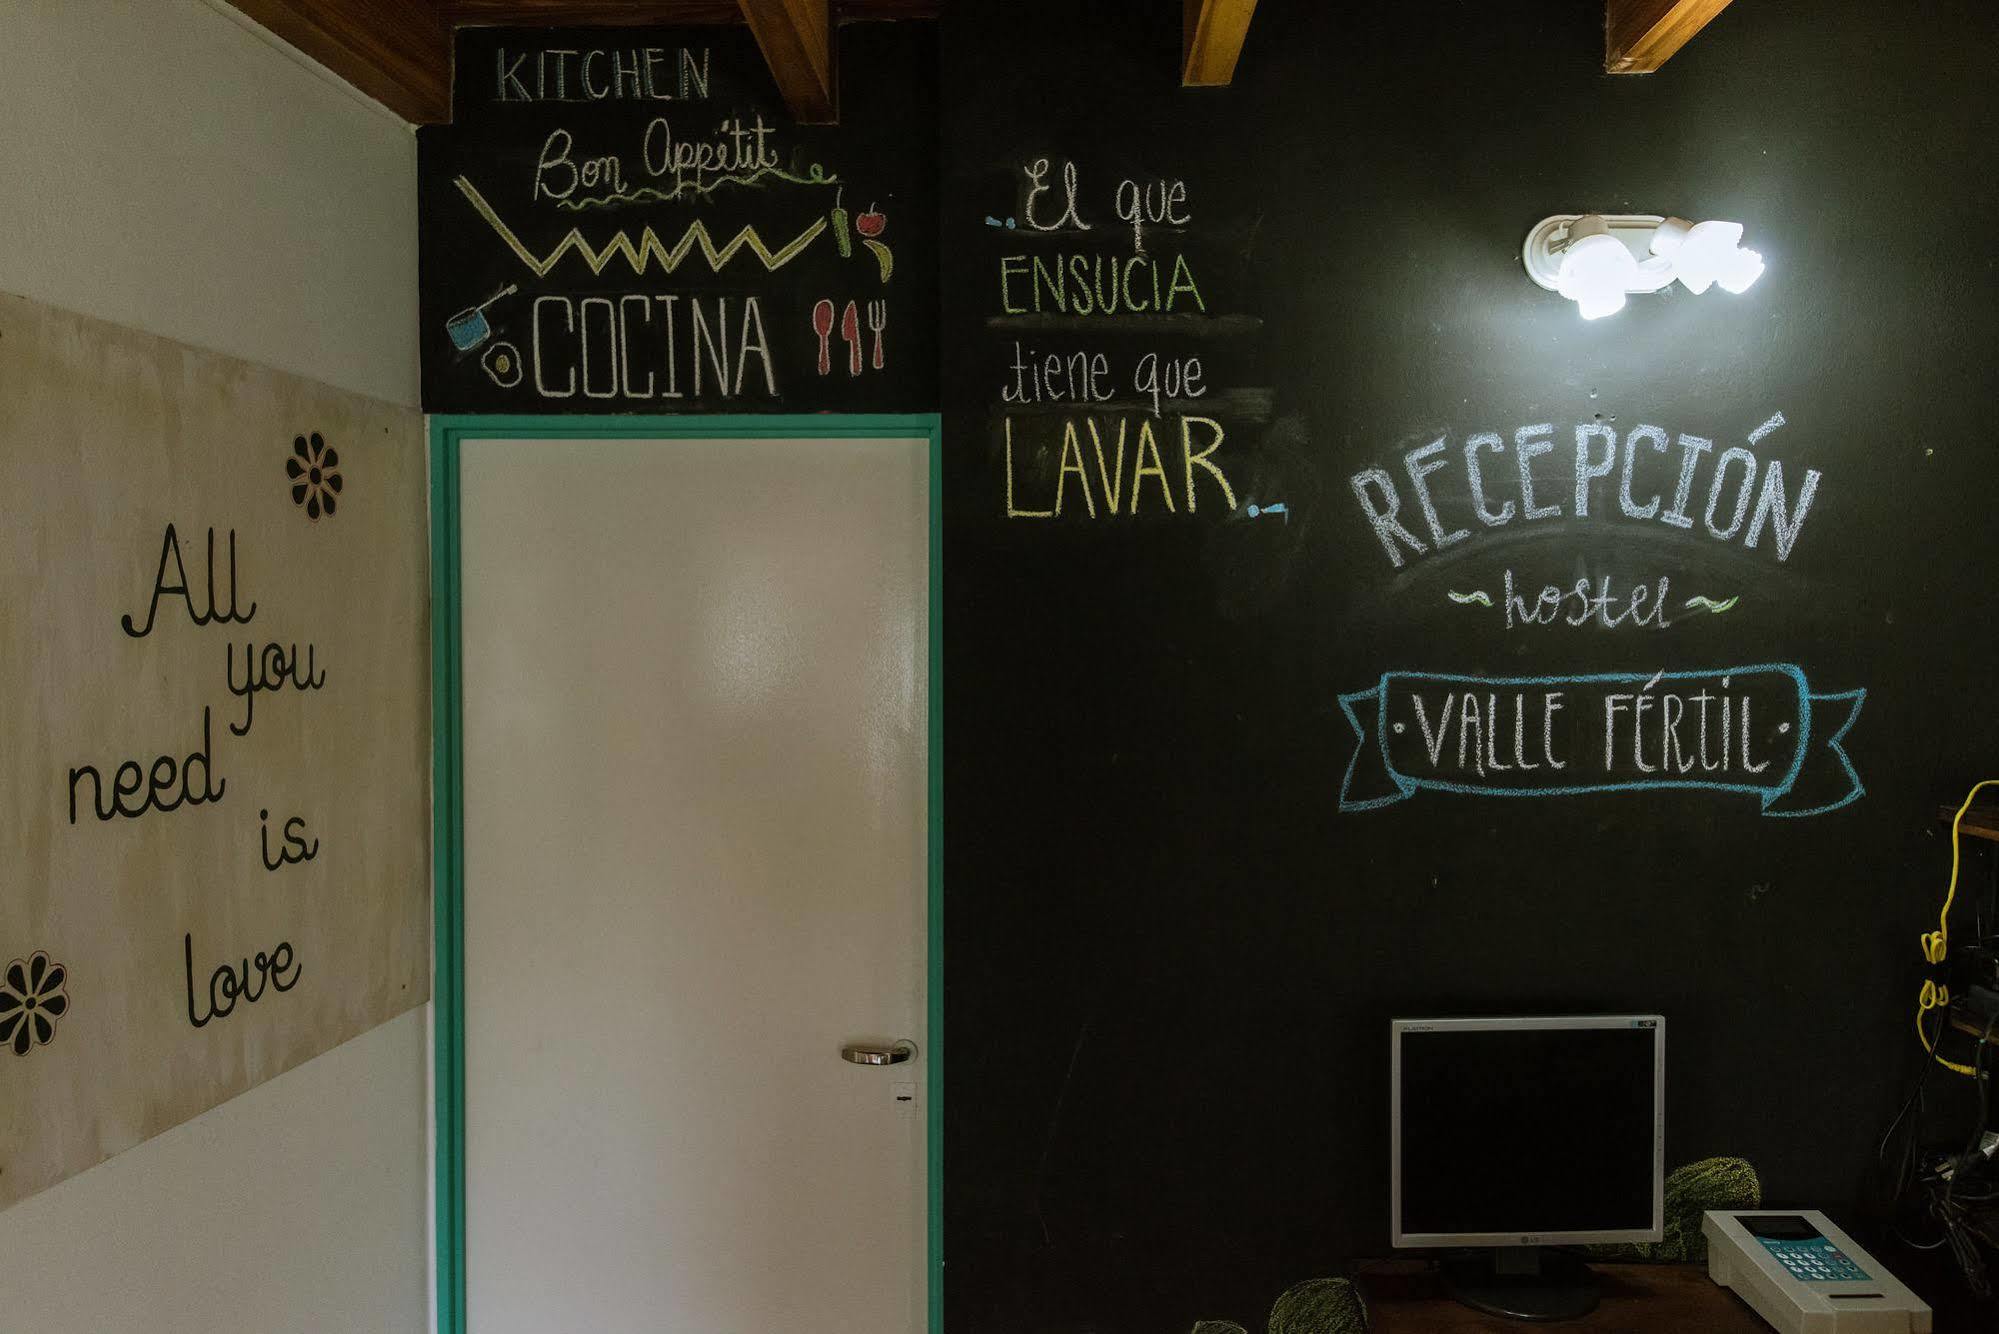 All
you
need
is
love
KITCHEN
Bon Appétit
COCINA
..El que
ENSUCIA
tiene que
LAVAR..
RECEPCIÓN
~hostel~
·VALLE FÉRTIL·
FLATRON
LG